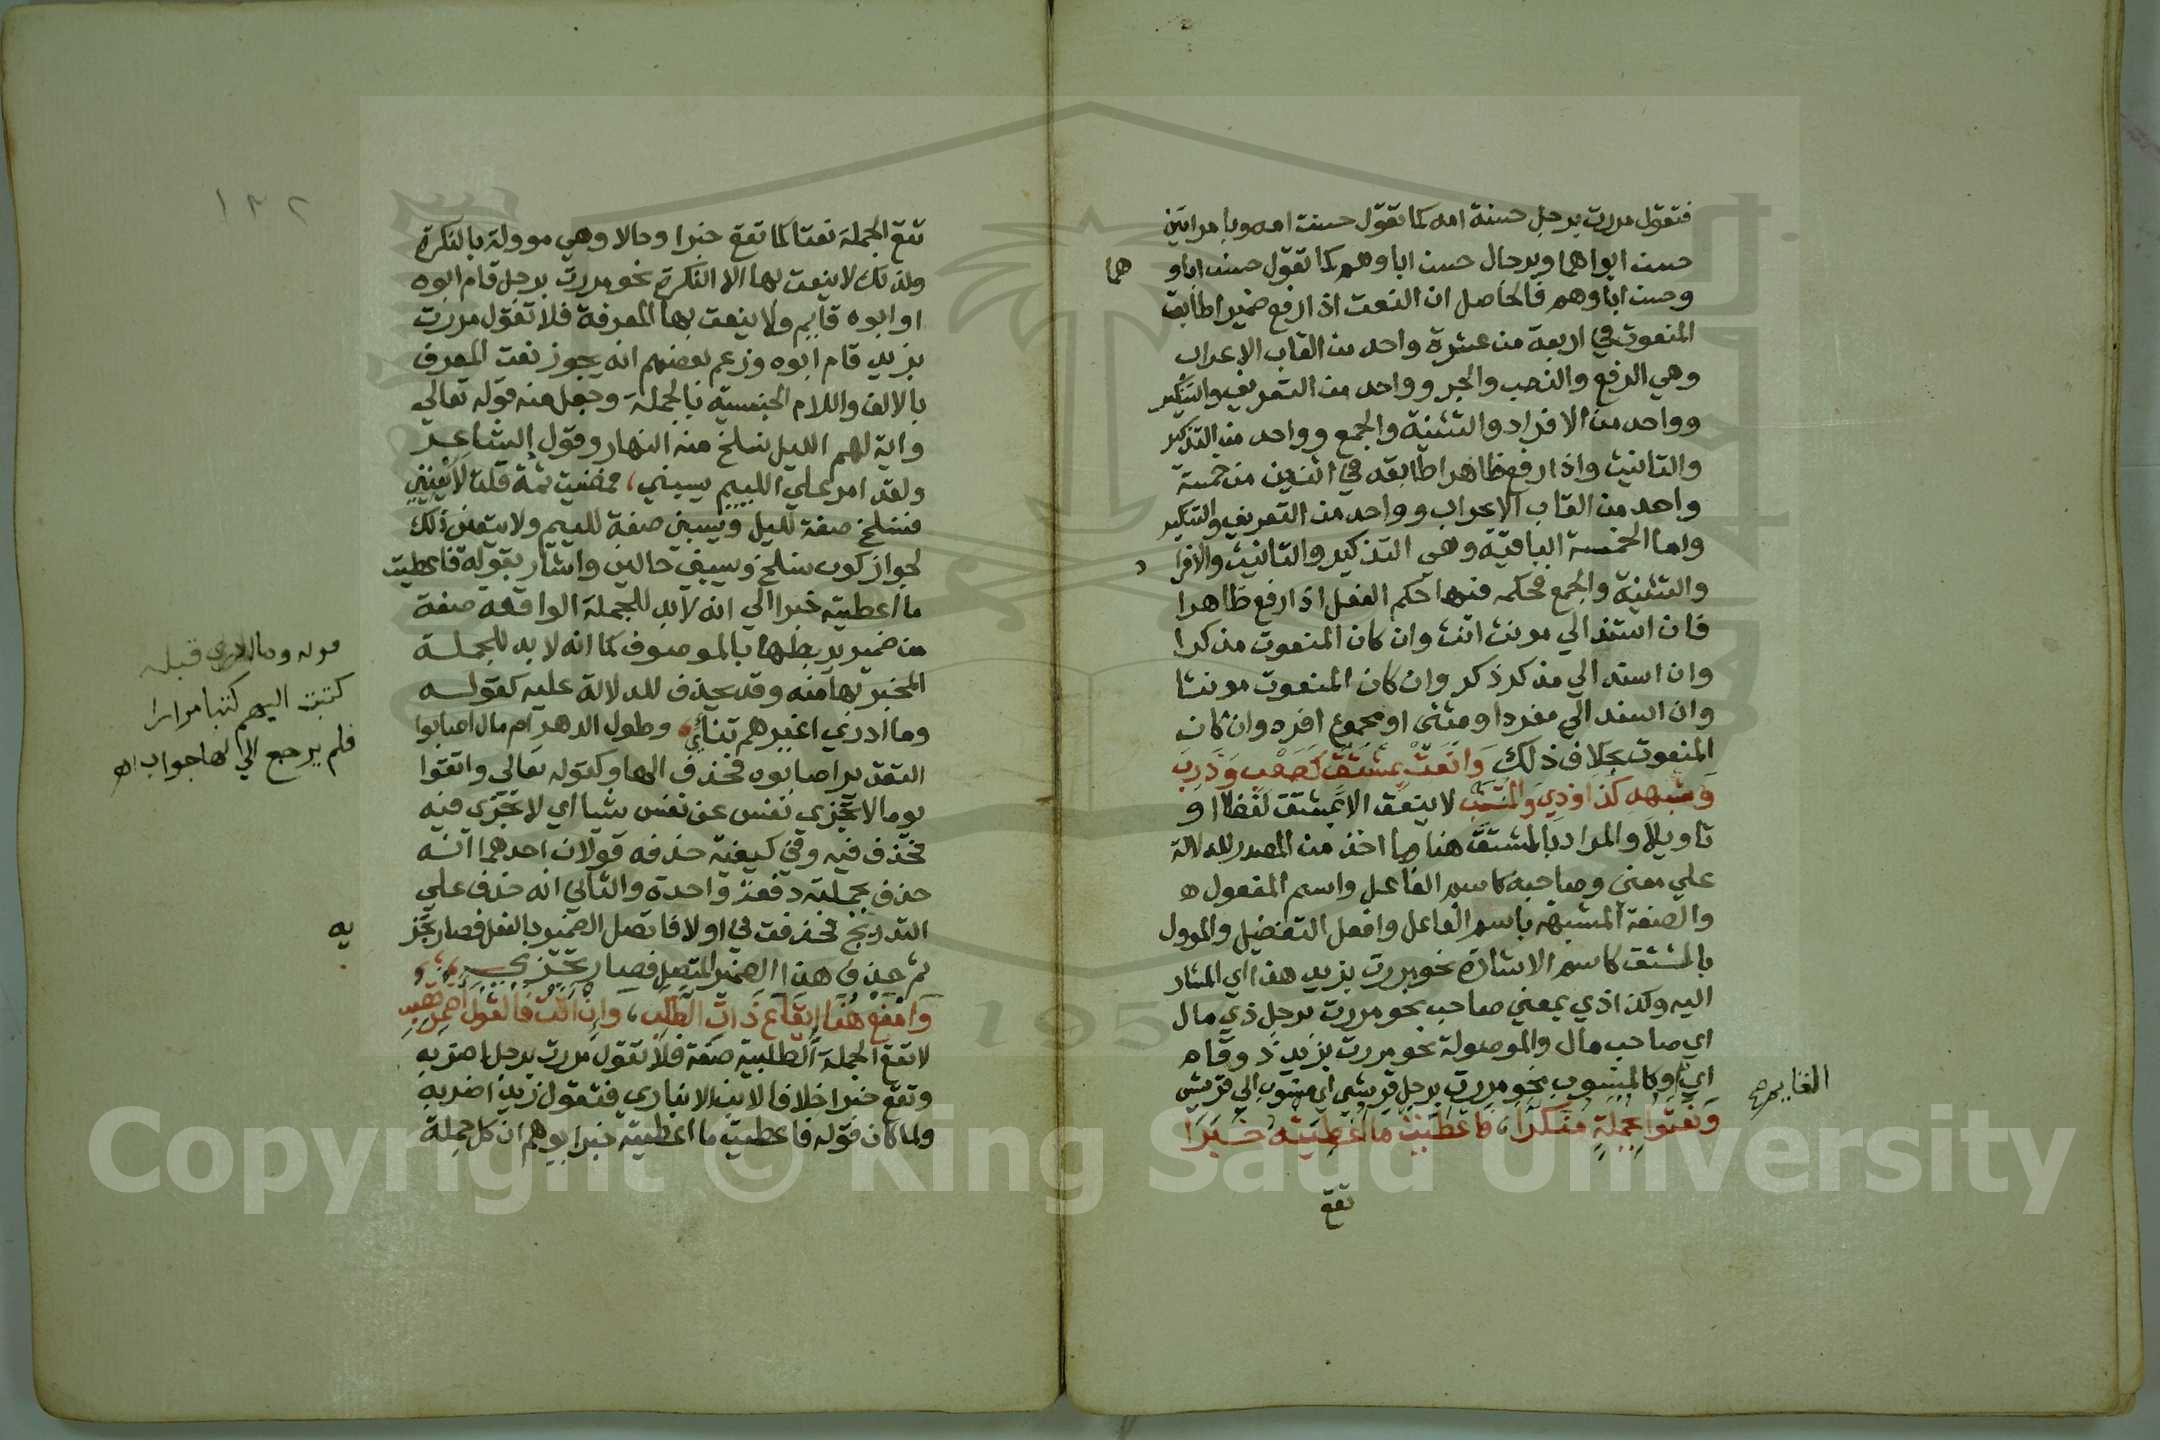 فتقول مررت برجل حسنة امه كما تقول حسنت امه وبامراتين
حسن ابواهما وبرجال حسن اباوهم كما تقول حسن ابواهما
وحسن اباوهم فالحاصل ان النعت اذا رفع ضميرا طابق
المنعوت في اربعة من عشرة واحد من القاب الاعراب
وهي الرفع والنصب والجر وواحد من التعريف والتنكير
وواحد من الافراد والتثنية والجمع وواحد من التذكير
والتانيث واذا رفع ظاهرا طابقه في اثنين من خمسة
واحد من القاب الاعراب وواحد من التعريف والتنكير
واما الخمسة الباقية وهي التذكير والتانيث والافراد
والتثنية والجمع فحكمه فيها حكم الفعل اذا رفع ظاهرا
فان اسند الي مونث انث وان كان المنعوت مذكرا
وان اسند الي مذكر ذكر وان كان المنعوت مونثا
وان اسند الي مفرد او مثنى او مجموع افرد وان كان
المنعوت بخلاف ذلك وَانعَتْ بِمُشتَقٍّ كَصَعْبٍ وَذَرِبْ
وَشِبْهِهِ كَذَا وَذِي وَالمُنتَسِبْ لا ينعت الا بمشتق لفظا او
تاويلا والمراد بالمشتق هنا ما اخذ من المصدر للدلالة
علي معني وصاحبه كاسم الفاعل واسم المفعول
والصفة المشبهة باسم الفاعل وافعل التفضيل والموول
بالمشتق كاسم الاشارة نحو مررت بزيد هذا اي المشار
اليه وكذا ذي بمعني صاحب نحو مررت برجل ذي مال
اي صاحب مال والموصولة نحو مررت بزيد ذو قام
اي القايم وكالمنسوب نحو مررت برجل قريشي اي منسوب الي قريش
وَنَعَتُوا بِجُمْلَةٍ مُنَكَّرَا، فَاُعْطِيَتْ مَا اُعْطِيَتْهُ خَبَرَا
تقع
١٣٢
تقع الجملة نعتا كما تقع خبرا وحالا وهي موولة بالنكرة
ولذلك لا ينعت بها الا النكرة نحو مررت برجل قام ابوه
او ابوه قايم ولا ينعت بها المعرفة فلا تقول مررت
بزيد قام ابوه وزعم بعضهم انه يجوز نعت المعرف
بالالف واللام الجنسية بالجملة وجعل منه قوله تعالي
واية لهم الليل نسلخ منه النهار وقول الشاعر
ولقد امر علي الليم يسبني، فمضيت ثمة قلت لا يعنيني
فنسلخ صفة لليل ويسبني صفة لليم ولا يتعين ذلك
لجواز كون نسلخ ويسبني حالين واشار بقوله فاعطيت
ما اعطيته خبرا الي انه لا بد للجملة الواقعة صفة
من ضمير يربطها بالموصوف كما انه لا بد للجملة
المخبر بها منه وقد يحذف للدلالة عليه كقوله
وما ادري اغيرهم تناءي، وطول الدهر ام مال اصابوا
التقدير اصابوه فحذف الها وكقوله تعالي واتقوا
يوما لا تجزي نفس عن نفس شيا اي لا تجزي فيه
فحذف فيه وفي كيفية حذفه قولان احدهما انه
حذف بجملته دفعة واحدة والثاني انه حذف علي
التدريج فحذفت في اولا فاتصل الضمير بالفعل فصار تجزيه
ثم حذف هذا الضمير المتصل فصار تجزي
وَامْنَعْ هُنَا اِيقَاعَ ذَاتِ الطَّلَبِ، وَاِنْ اَتَتْ فَالقَوْلَ اضْمِرْ تُصِبِ
لا تقع الجملة الطلبية صفة فلا تقول مررت برجل اضربه
وتقع خبرا خلافا لابن الانباري فتقول زيد اضربه
ولما كان قوله فاعطيت ما اعطيته خبرا يوهم ان كل جملة
قوله وما ادري قبله
كتبت اليهم كتبا مرارا
فلم يرجع الي لها جواب اه